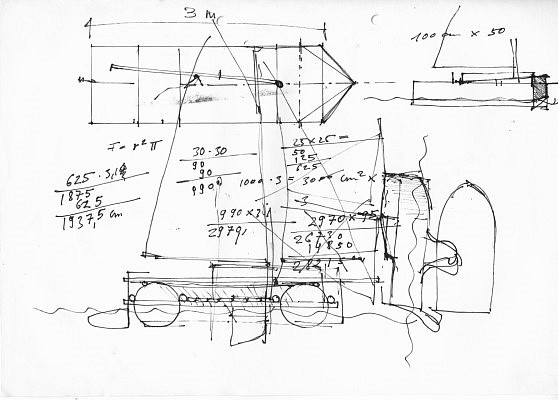 3 m
100 cm x 50
F = r² π
625 · 3,14
1875
625
1937,5 cm
30 · 30
90
90
990
25 x 25 =
50
125
625
1000 · 3 = 3000 cm² x
990 x 3
2970
2970 x 95
26730
14850